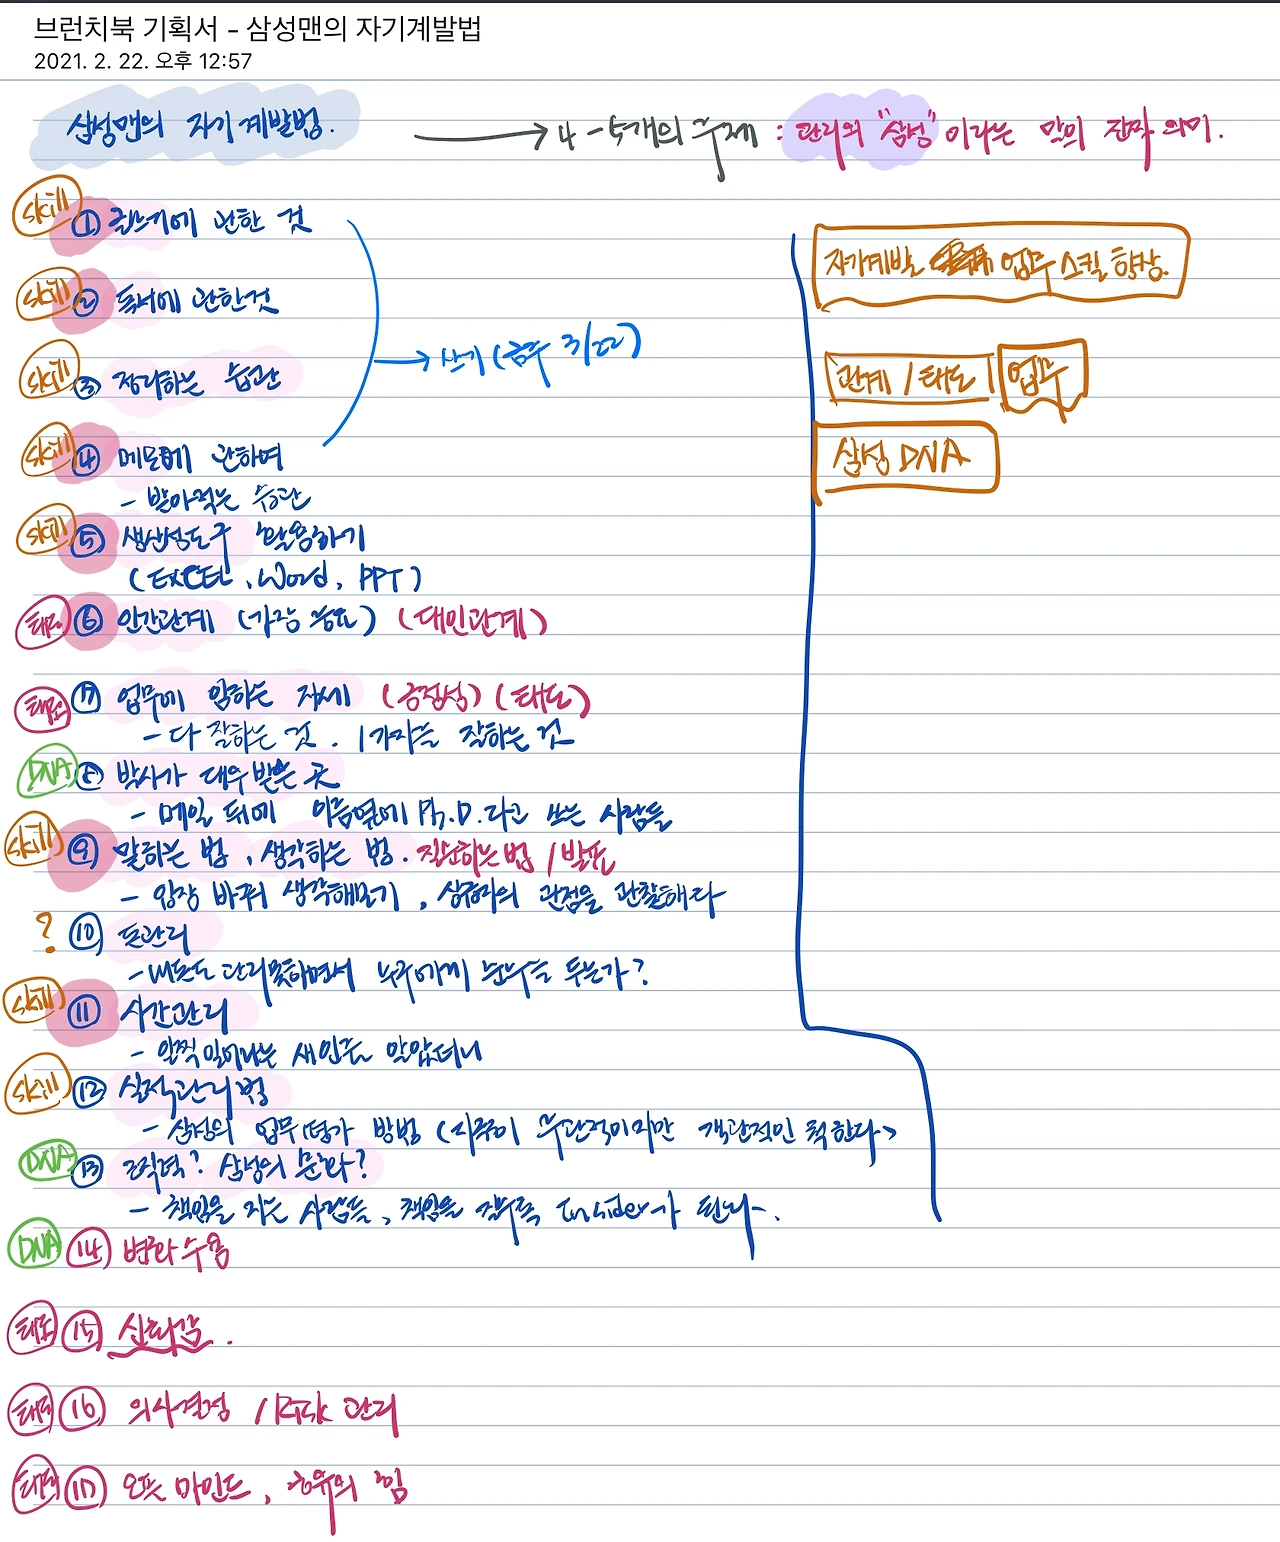 브런치북 기획서 - 삼성맨의 자기계발법
2021. 2. 22. 오후 12:57
삼성맨의 자기계발법. → 4-5개의 주제 : 관리의 "삼성"이라는 말의 진짜 의미.
skill ① 글쓰기에 관한 것
skill ② 독서에 관한것
skill ③ 정리하는 습관
→ 쓰기 (금주 3/22)
skill ④ 메모에 관하여
- 받아적는 습관
skill ⑤ 생산성도구 활용하기
(EXCEL, Word, PPT)
태도 ⑥ 인간관계 (가장 중요) (대인관계)
태도 ⑦ 업무에 임하는 자세 (긍정성) (태도)
- 다 잘하는 것. 1가지를 잘하는 것
DNA ⑧ 박사가 대우받는 곳
- 메일 뒤에 이름옆에 Ph.D.라고 쓰는 사람들
skill ⑨ 말하는 법, 생각하는 법. 질문하는법 / 발표
- 입장 바꿔 생각해보기, 상급자의 관점을 관찰해라
? ⑩ 돈관리
- 내돈도 관리못하면서 누구에게 훈수를 두는가?
skill ⑪ 시간관리
- 일찍 일어나는 새인 줄 알았더니
skill ⑫ 실적관리법
- 삼성의 업무평가 방법 (지극히 주관적이지만 객관적인 척한다)
DNA ⑬ 조직력? 삼성의 문화?
- 책임을 지는 사람들, 책임을 질수록 Insider가 된다.
DNA ⑭ 변화수용
태도 ⑮ 신뢰감.
태도 ⑯ 의사결정 / Risk 관리
태도 ⑰ 오픈 마인드, 공유의 힘
자기계발 업무 스킬 향상.
관계 / 태도 | 업무
삼성 DNA